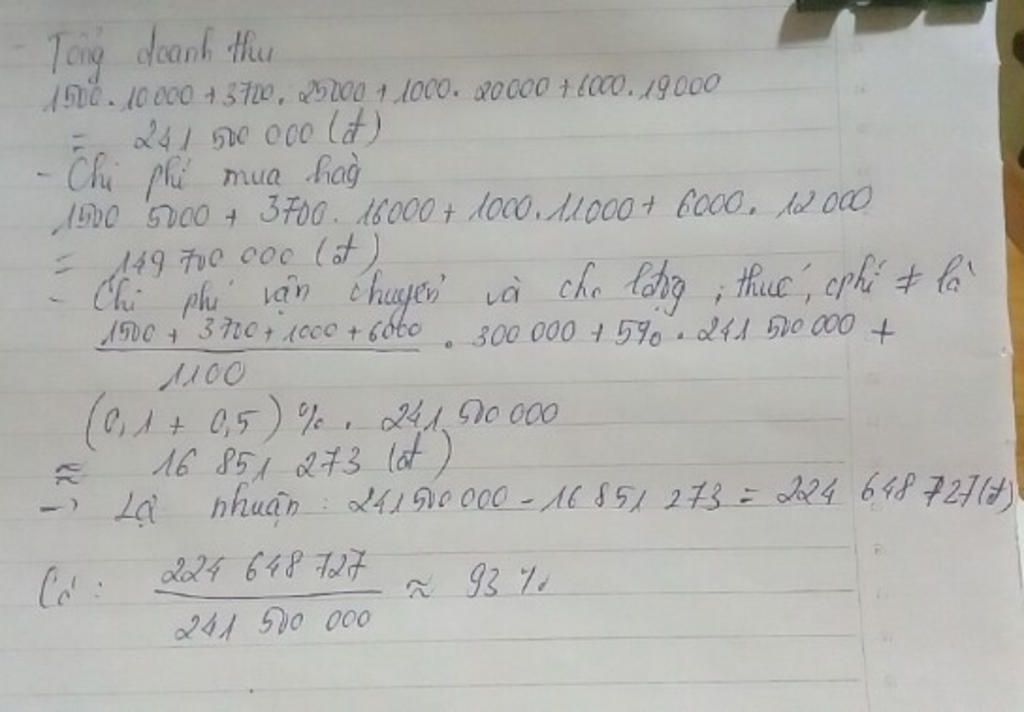 - Tổng doanh thu
1500 . 10 000 + 3700 . 25000 + 1000 . 20000 + 6000 . 19000
= 241 500 000 (đ)
- Chi phí mua hàg
1500 5000 + 3700 . 16000 + 1000 . 11000 + 6000 . 12 000
= 149 700 000 (đ)
- Chi phí vận chuyển và cho lương, thuế, cphí ≠ là
1500 + 3700 + 1000 + 6000 . 300 000 + 5% . 241 500 000 +
1100
(0,1 + 0,5) % . 241 500 000
≈ 16 851 273 (đ)
-> Lợi nhuận : 241500000 - 16 851 273 = 224 648 727(đ)
Có : 224 648 727 ≈ 93 %
241 500 000